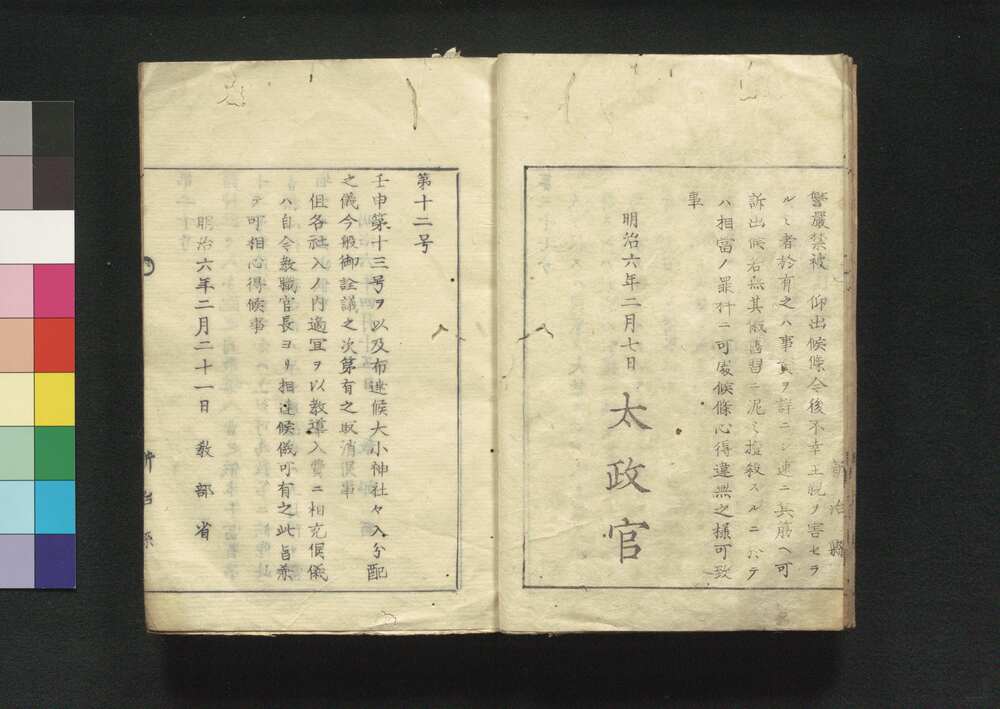 警嚴禁被 仰出候條今後不幸至親ノ害セラ
ルヽ者於有之ハ事實ヲ詳ニシ速ニ其筋ヘ可
訴出候若無其儀舊習ニ泥ミ擅殺スルニ於テ
ハ相當ノ罪科ニ可處候條心得違無之樣可致
事
明治六年二月七日
太政官
第十二号
壬申第十三号ヲ以及布達候大小神社々入分配
之儀今般御詮議之次第有之取消候事
但各社入ノ内適宜ヲ以教導入費ニ相充候儀
ハ自今教職官長ヨリ相達候儀可有之此旨兼
テ可相心得候事
明治六年二月二十一日 教部省
新治縣